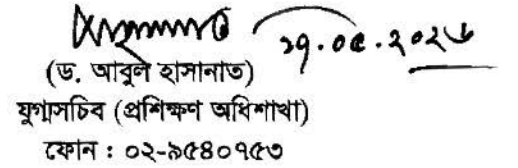 ২৭.০৫.২০২৬
(ড. আবুল হাসানাত)
যুগ্মসচিব (প্রশিক্ষণ অধিশাখা)
ফোন : ০২-৯৫৪০৭৫৩